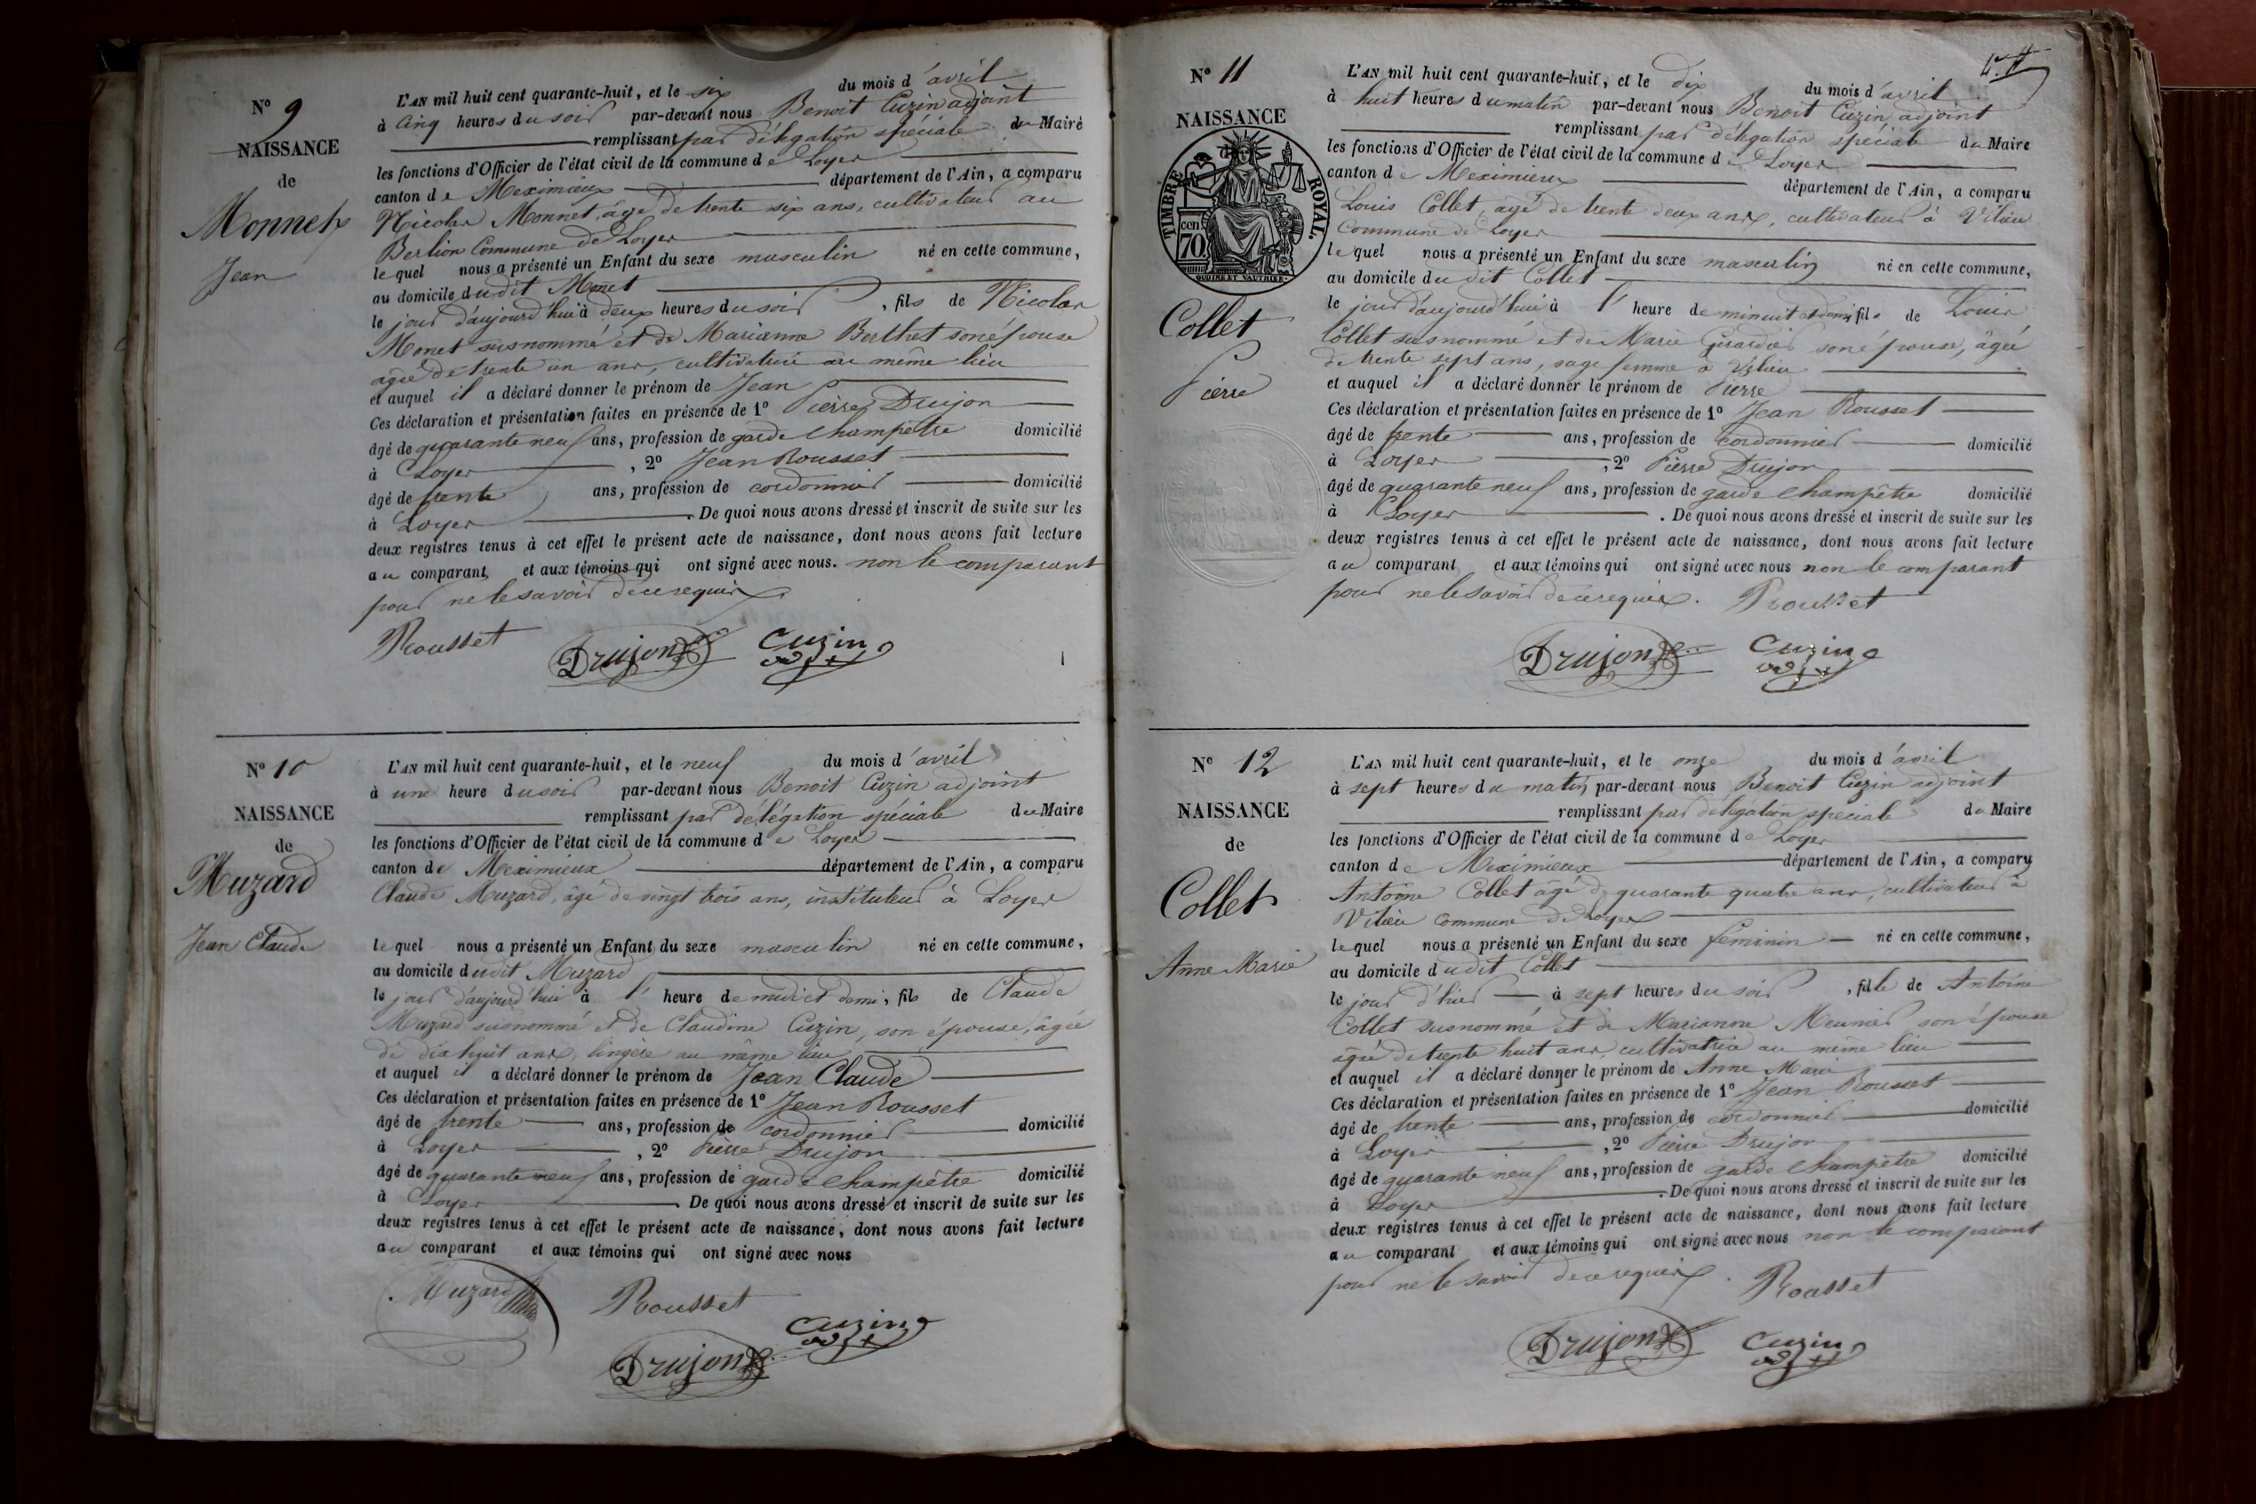 N° 9
NAISSANCE
de
Monnet
Jean
L'AN mil huit cent quarante-huit, et le six du mois d'avril
à cinq heures du soir par-devant nous Benoit Cuzin adjoint
remplissant par délégation spéciale du Maire
les fonctions d'Officier de l'état civil de la commune de Loyer
canton de Meximieux département de l'Ain, a comparu
Nicolas Monnet, âgé de trente six ans, cultivateur au
Berlion Commune de Loyer
lequel nous a présenté un Enfant du sexe masculin né en cette commune,
au domicile dudit Monet
le jour d'aujourd'hui à deux heures du soir, fils de Nicolas
Monet susnommé et de Marianne Berthet son épouse
agée de trente un ans, cultivatrice au même lieu
et auquel il a déclaré donner le prénom de Jean
Ces déclaration et présentation faites en présence de 1° Pierre Drujon
âgé de quarante neuf ans, profession de garde champêtre domicilié
à Loyer, 2° Jean Rousset
âgé de trente ans, profession de cordonnier domicilié
à Loyer. De quoi nous avons dressé et inscrit de suite sur les
deux registres tenus à cet effet le présent acte de naissance, dont nous avons fait lecture
au comparant et aux témoins qui ont signé avec nous. non le comparant
pour ne le savoir de ce requis.
Rousset Drujon Cuzin
N° 10
NAISSANCE
de
Muzard
Jean Claude
L'AN mil huit cent quarante-huit, et le neuf du mois d'avril
à une heure du soir par-devant nous Benoit Cuzin adjoint
remplissant par délégation spéciale du Maire
les fonctions d'Officier de l'état civil de la commune de Loyer
canton de Meximieux département de l'Ain, a comparu
Claude Muzard, âgé de vingt trois ans, instituteur à Loyer
lequel nous a présenté un Enfant du sexe masculin né en cette commune,
au domicile dudit Muzard
le jour d'aujourd'hui à l'heure de midi et demi, fils de Claude
Muzard susnommé et de Claudine Cuzin, son épouse, âgée
de dix huit ans, lingère au même lieu
et auquel il a déclaré donner le prénom de Jean Claude
Ces déclaration et présentation faites en présence de 1° Jean Rousset
âgé de trente ans, profession de cordonnier domicilié
à Loyer, 2° Pierre Drujon
âgé de quarante neuf ans, profession de garde champêtre domicilié
à Loyer. De quoi nous avons dressé et inscrit de suite sur les
deux registres tenus à cet effet le présent acte de naissance, dont nous avons fait lecture
au comparant et aux témoins qui ont signé avec nous
Muzard Rousset
Drujon Cuzin
N° 11
NAISSANCE
de
TIMBRE ROYAL.
70 cen
Collet
Pierre
L'AN mil huit cent quarante-huit, et le dix du mois d'avril
à huit heures du matin par-devant nous Benoit Cuzin adjoint
remplissant par délégation spéciale du Maire
les fonctions d'Officier de l'état civil de la commune de Loyer
canton de Meximieux département de l'Ain, a comparu
Louis Collet, agé de trente deux ans, cultivateur à Vilieu
Commune de Loyer
lequel nous a présenté un Enfant du sexe masculin né en cette commune,
au domicile du dit Collet
le jour d'aujourd'hui à l'heure de minuit et demi, fils de Louis
Collet susnommé et de Marie Girardier son épouse, âgée
de trente sept ans, sage femme à Vilieu
et auquel il a déclaré donner le prénom de Pierre
Ces déclaration et présentation faites en présence de 1° Jean Rousset
âgé de trente ans, profession de cordonnier domicilié
à Loyer, 2° Pierre Drujon
âgé de quarante neuf ans, profession de garde champêtre domicilié
à Loyer. De quoi nous avons dressé et inscrit de suite sur les
deux registres tenus à cet effet le présent acte de naissance, dont nous avons fait lecture
au comparant et aux témoins qui ont signé avec nous non le comparant
pour ne le savoir de ce requis. Rousset
Drujon Cuzin
N° 12
NAISSANCE
de
Collet
Anne Marie
L'AN mil huit cent quarante-huit, et le onze du mois d'avril
à sept heures du matin par-devant nous Benoit Cuzin adjoint
remplissant par délégation spéciale du Maire
les fonctions d'Officier de l'état civil de la commune de Loyer
canton de Meximieux département de l'Ain, a comparu
Antoine Collet âgé de quarante quatre ans, cultivateur à
Vilieu commune de Loyer
lequel nous a présenté un Enfant du sexe feminin né en cette commune,
au domicile dudit Collet
le jour d'hier à sept heures du soir, fille de Antoine
Collet susnommé et de Marianne Meunier son épouse
agée de trente huit ans, cultivatrice au même lieu
et auquel il a déclaré donner le prénom de Anne Marie
Ces déclaration et présentation faites en présence de 1° Jean Rousset
âgé de trente ans, profession de cordonnier domicilié
à Loyer, 2° Pierre Drujon
âgé de quarante neuf ans, profession de garde champêtre domicilié
à Loyer. De quoi nous avons dressé et inscrit de suite sur les
deux registres tenus à cet effet le présent acte de naissance, dont nous avons fait lecture
au comparant et aux témoins qui ont signé avec nous non le comparant
pour ne le savoir de ce requis. Rousset
Drujon Cuzin